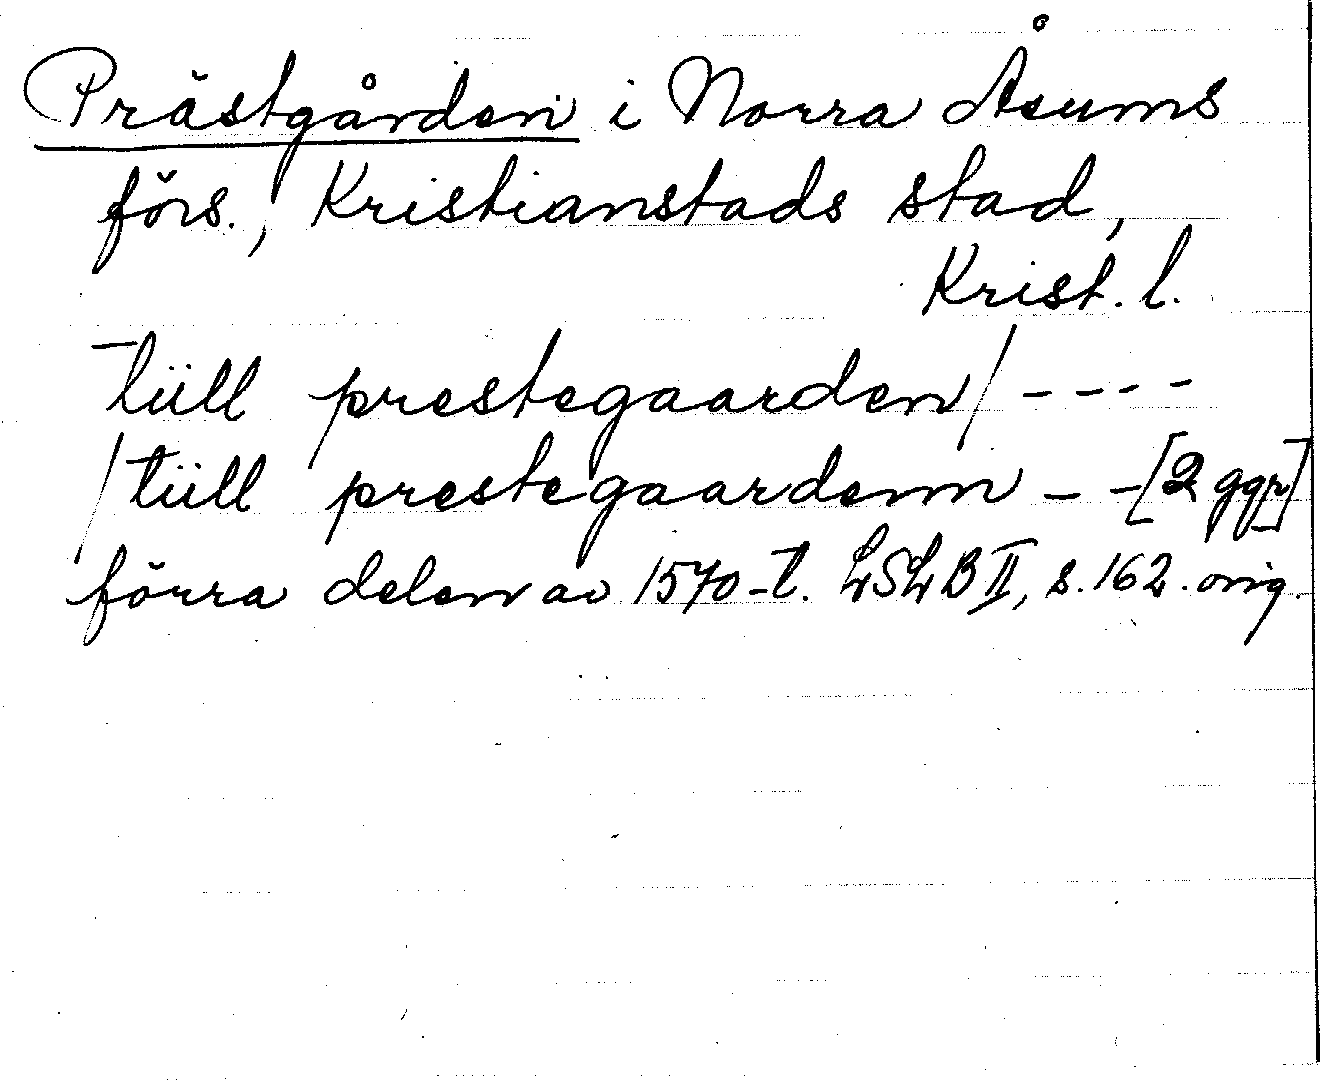 Prästgården i Norra Åsums
förs., Kristianstads stad,
Krist. l.
tüll prestegaarden/ - - - -
/tüll prestegaardenn - - [2 ggr]
förra delen av 1570-t. LSLB II, s. 162. orig.